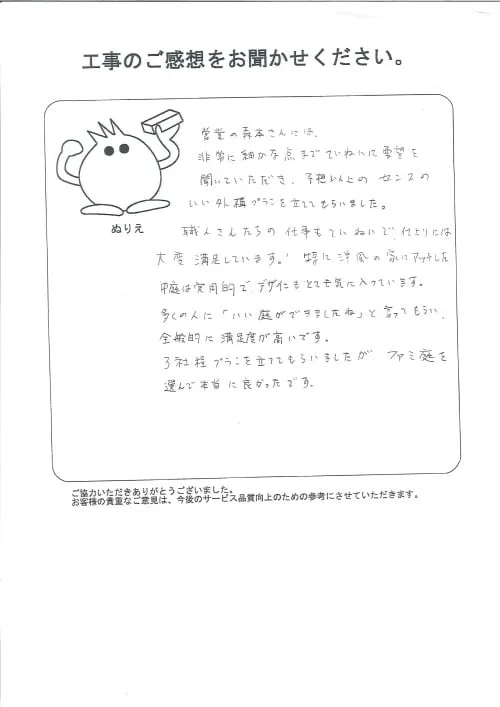 工事のご感想をお聞かせください。
ぬりえ
営業の森本さんには、
非常に細かな点までていねいに要望を
聞いていただき、予想以上の センスの
いい外構プランを立ててもらいました。
職人さんたちの 仕事もていねいで、仕上りには
大変 満足しています。特に 洋風の家にマッチした
中庭は実用的で デザインもとても気に入っています。
多くの人に「いい庭ができましたね」と言ってもらい、
全般的に 満足度が高いです。
3社程 プランを立ててもらいましたが、ファミ庭を
選んで本当に良かったです。
ご協力いただきありがとうございました。
お客様の貴重なご意見は、今後のサービス品質向上のための参考にさせていただきます。